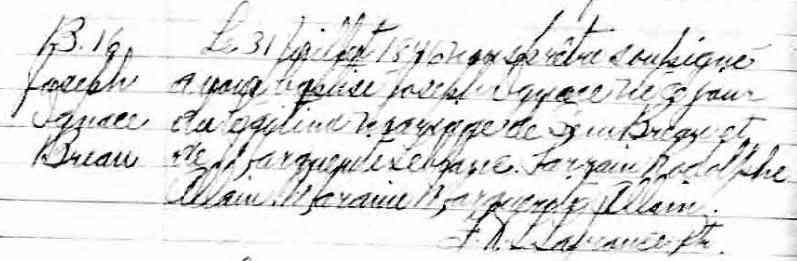 B. 16 Le 31 juillet 1840 nous prêtre soussigné
Joseph avons baptisé Joseph Ignace né ce jour
Ignace du légitime mariage de Breau et
Breau de Marguerite Parrain Rodolphe
Allain Maraine Marguerite Allain.
Lafrance Ptr.